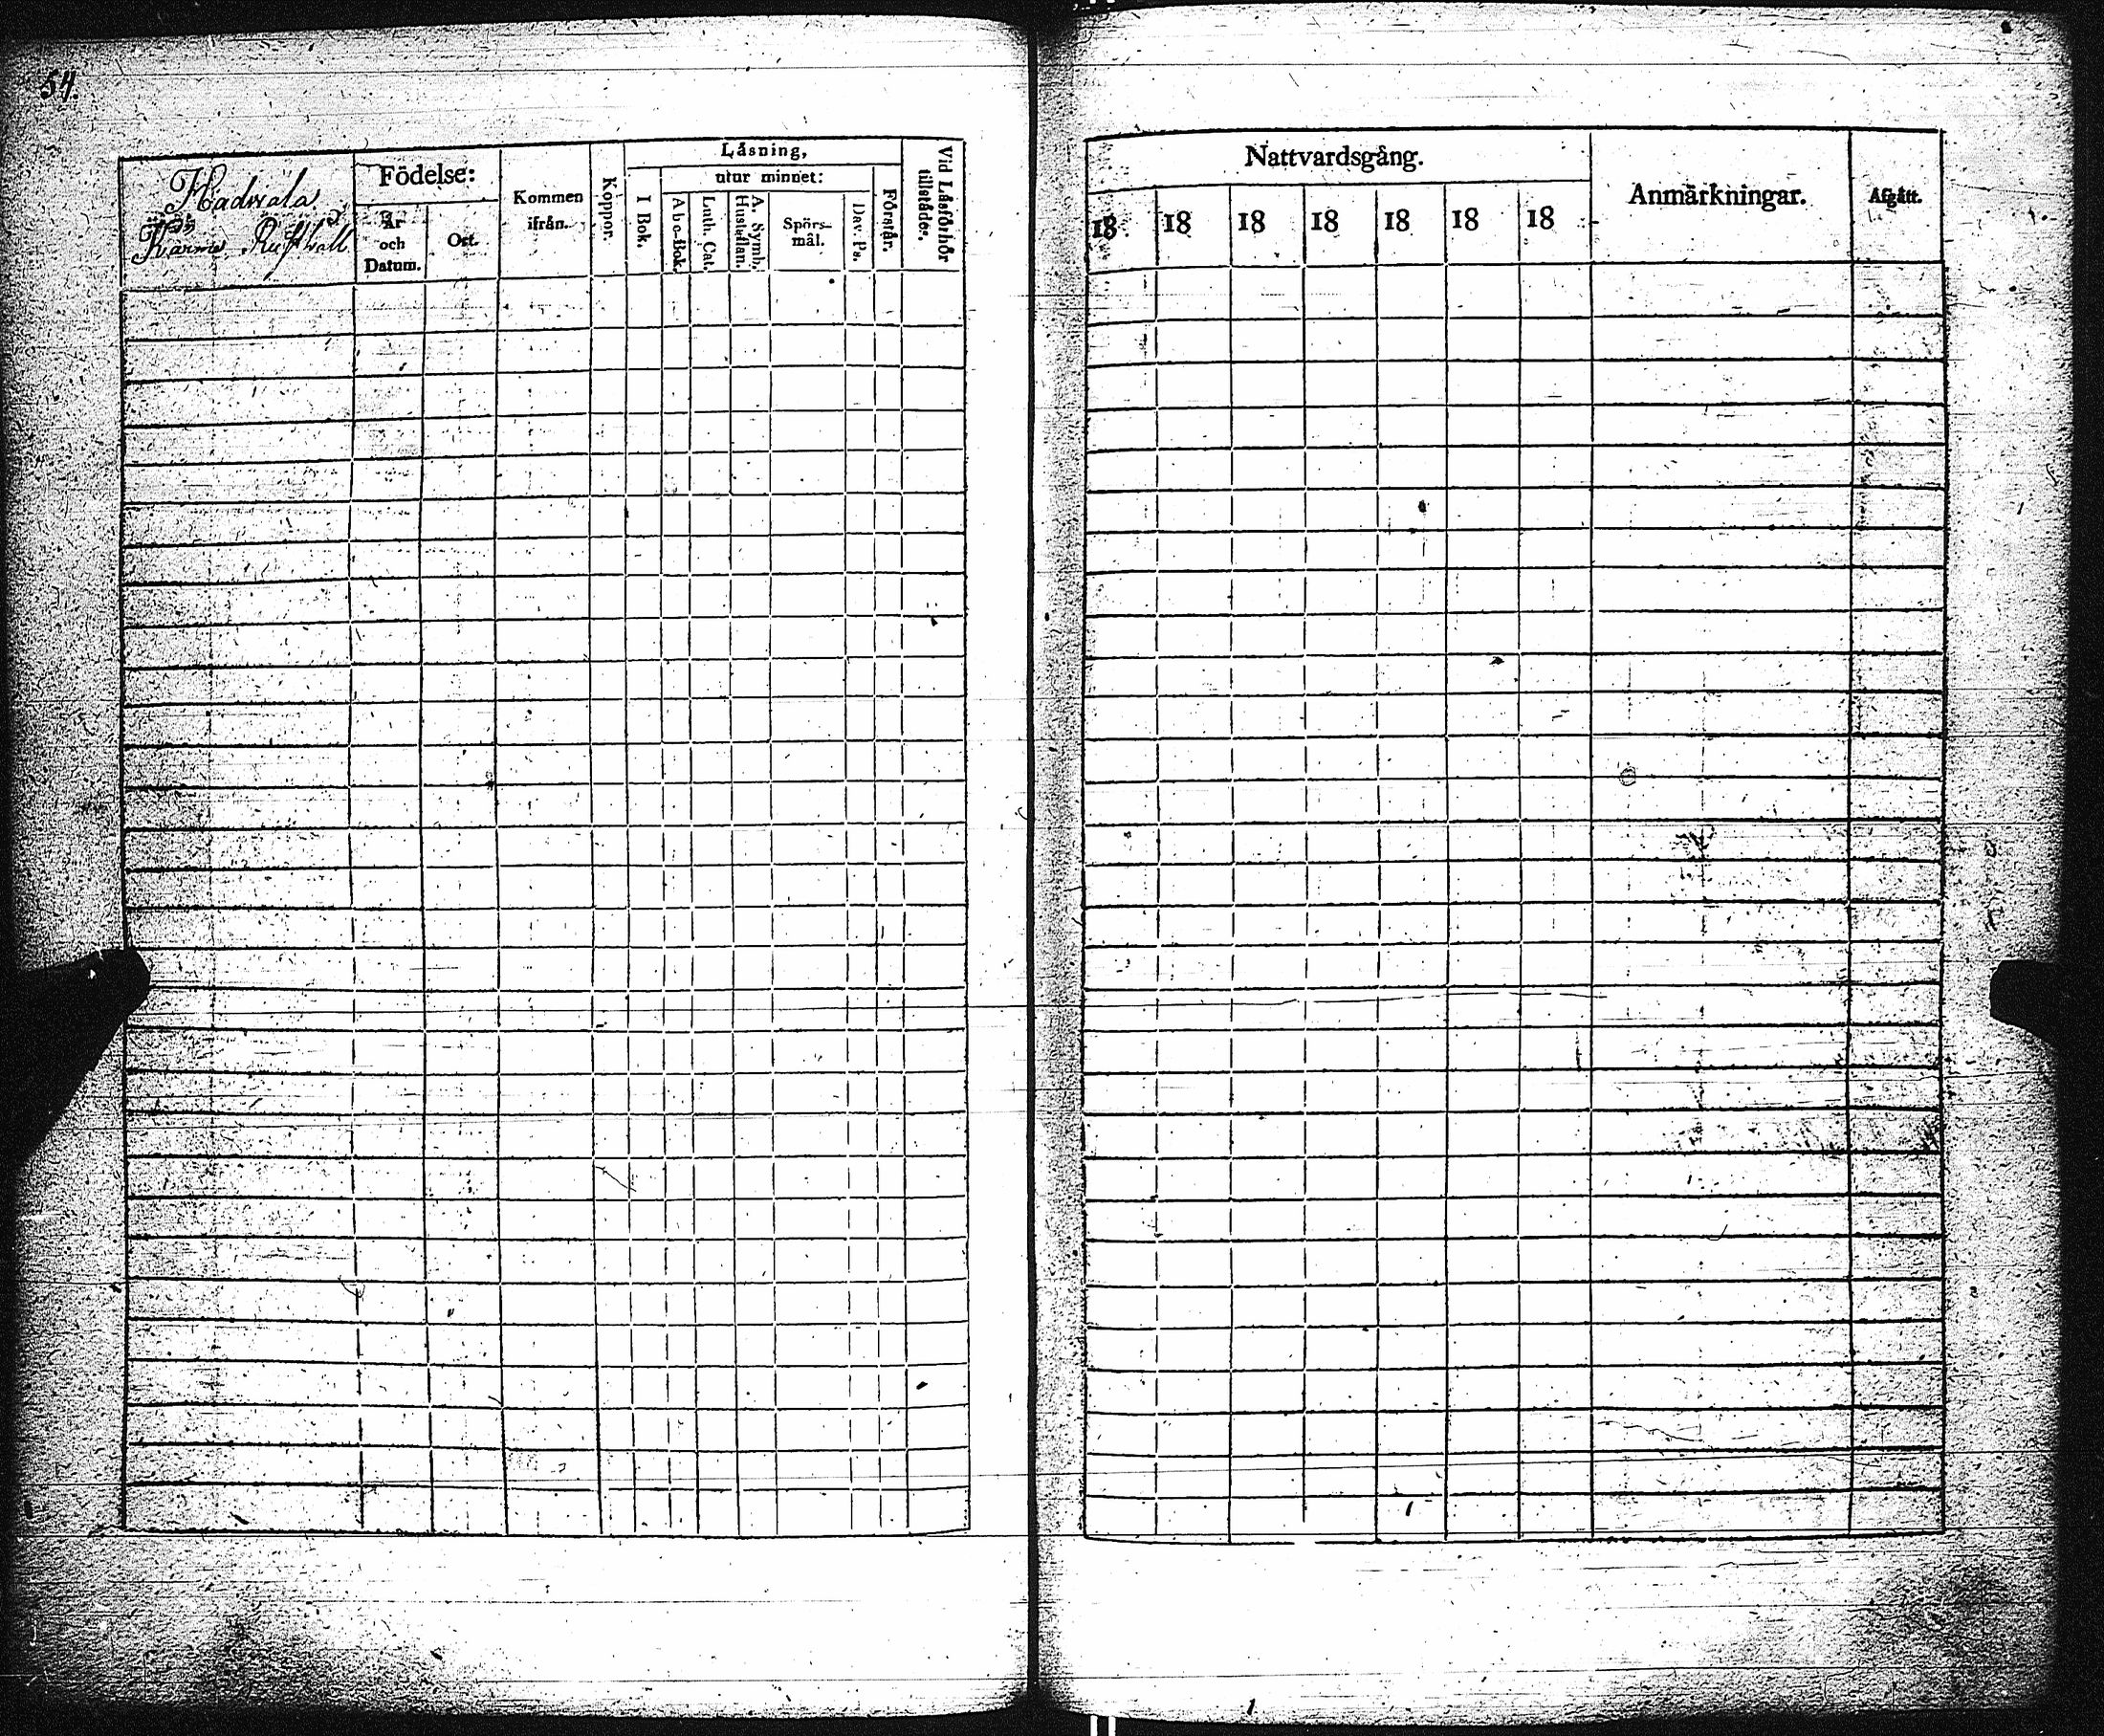 54
Hadwala
Födelse:
År
och
Datum.
Ort.
Kommen
ifrån.
Koppor.
Läsning,
utur minnet:
I Bok.
Abc-Bok.
Luth. Cat.
A. Symb.
Hustaflan.
Spörs-
mål.
Dav. Ps.
Förstår.
Vid Läsförhör
tillstädes.
Nattvardsgång.
18 18 18 18 18 18 18
Anmärkningar.
Afgått.